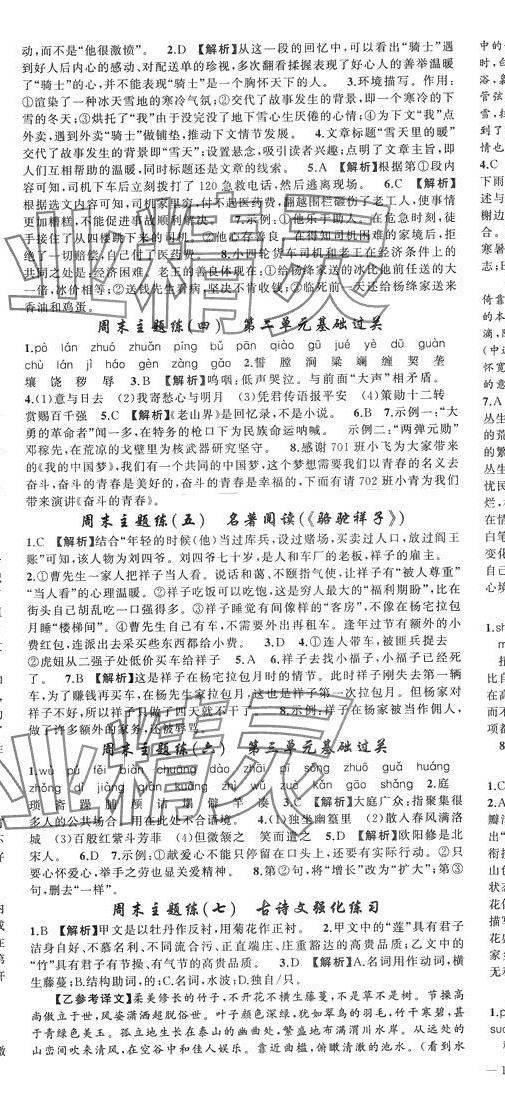 动,而不是“他很激愤”。 2.D 【解析】从这一段的回忆中,可以看出“骑士”遇
到好人后内心的感动、对配送单的珍视,多次翻看揉握表现了好心人的善举温暖
了“骑士”的心,并不能表现“骑士”是一个胸怀天下的人。 3.环境描写。作用:
①渲染了一种冰天雪地的寒冷气氛;②交代了故事发生的背景,即一个寒冷的下
雪的冬天;③烘托了“我”由于没完没了地下雪心生厌倦的心情;④为下文“我”点
外卖,遇到外卖“骑士”做铺垫,推动下文情节发展。 4.文章标题“雪天里的暖”
交代了故事发生的背景即“雪天”;设置悬念,吸引读者兴趣;点明了文章主旨,即
人们互相帮助的温暖,该标题还是文章的线索。 5.A 【解析】根据第①段内
容可知,司机下车后立刻拨打了120急救电话,然后逃离现场。 6.C 【解析】
根据选文内容可知,司机不付医药费,翻越围栏砸伤了老工人,使事情
更加糟糕,不可能顺利解决。 7.示例:①他乐于助人。在危急时刻,徒
手接住了从四楼跳下来的司机。②他心存善良。在得知司机困难的家境后,拒
绝了一切赔偿,自己付了医药费。 8.小四轮货车司机和老王在经济条件上的
共同之处是:经济困难。老王的善良体现在:①给杨绛家送的冰比他前任送的大
一倍,冰价相等;②送钱先生看病,坚决不肯收钱;③临死前一天还给杨绛家送来
香油和鸡蛋。
周末主题练(四) 第二单元基础过关
1.pò lán zhuó zhuǎn píng bǔ pān qiào gū jué yè dū guàn
chù lín jǐ háo gēn zàng gāo 2.誓 膛 涧 梁 斓 缠 契 垄
壤 饶 秽 辱 3.B 【解析】呜咽:低声哭泣。与前面“大声”相矛盾。
4.(1)意与日去 (2)我寄愁心与明月 (3)凭君传语报平安 (4)策勋十二转
赏赐百千强 5.C 【解析】《老山界》是回忆录,不是小说。 6.B 7.示例一:“大
勇的革命者”闻一多,在特务的枪口下为民族命运呐喊。 示例二:“两弹元勋”
邓稼先,在荒凉的戈壁里为核武器研究坚守。 8.感谢701班小飞为大家带来
的《我的中国梦》,我们有一个共同的中国梦,这个梦想需要我们以青春的名义去
奋斗,奋斗的青春是美丽的,奋斗的青春是幸福的,下面有请702班小青为我们
带来演讲《奋斗的青春》。
周末主题练(五) 名著阅读(《骆驼祥子》)
1.C 【解析】结合“年轻的时候(他)当过库兵,设过赌场,买卖过人口,放过阎王
账”可知,该人物为刘四爷。刘四爷七十岁,是人和车厂的老板,祥子的雇主。
2.①曹先生一家人把祥子当人看。说话和蔼、不颐指气使,让祥子有“被人尊重”
“当人看”的心理温暖。②祥子吃饭可以吃饱,这是穷人最大的“福利期盼”,比在
街头自己胡乱吃一口强得多。③祥子睡觉有间像样的“客房”,不像在杨宅拉包
月睡“楼梯间”。④曹先生家不需要额外用车出门应酬。逢年过节有额外的小
红包、连派出去采买些东西都给小费。 3.D 4.①连人带车,被匪兵掳去
②虎妞从二强子处低价买车给祥子 5.A 6.祥子去找小福子,小福子已经死
了。 7.B 【解析】这是祥子在杨宅拉包月时的情节。此时祥子刚失去第一辆
车,为了赚钱再买车,在杨先生家拉包月,这也是祥子第一次拉包月。但杨家对
祥子不好,所以祥子只做了四天就不干了。 8.示例:祥子在杨家被当作佣人,
做了许多额外的家务,还被辱骂。
周末主题练(六) 第三单元基础过关
1.wù pú tēi biǎn chuāng dào zhāi pǐ sǒng zhuō guǎ huáng
zhǒng dī jiàng gěng yóng diàn é sǎo wǎ zhǎ kǎn gāo shǎng 2.庭
琐 斋 躁 脯 预 诸 塌 癖 瘠 凑 3.B 【解析】大庭广众:指聚集很
多人的公共场合,用在此处不合语境。 4.(1)独坐幽篁里 (2)散入春风满洛
城 (3)百般红紫斗芳菲 (4)但微颔之 笑而遣之 5.D 【解析】欧阳修是北
宋人。 6.D 7.示例:①献爱心不能只停留在口头上,还要有实际行动。②只要
人人怀爱心,举手之劳也显关爱精神。 8.第②句,将“增长”改为“扩大”;第③
句,删去“一样”。
周末主题练(七) 古诗文强化练习
1.B 【解析】甲文是以牡丹作反衬,用菊花作正衬。 2.甲文中的“莲”具有君子
洁身自好、不慕名利、不同流合污、正直端庄、庄重豁达的高贵品质;乙文中的
“竹”具有君子有节操、有气节的高贵品质。 3.D 【解析】A.名词用作动词,横
生藤蔓;B.结构助词,的;C.名词,水波;D.独自/只。
【乙参考译文】柔美修长的竹子,不开花不横生藤蔓,不是草不是树。节操高
尚傲立于世,风姿潇洒超脱世俗。叶子颜色深绿,犹如翠鸟的羽毛,竹干寒碧,甚
于青绿色美玉。孤立地生长在泰山的幽曲处,繁盛地布满渭川水岸。从远处的
山峦间吹来清风,在空谷中和佳人娱乐。靠近曲槛,俯瞰清澈的池水。(看到水